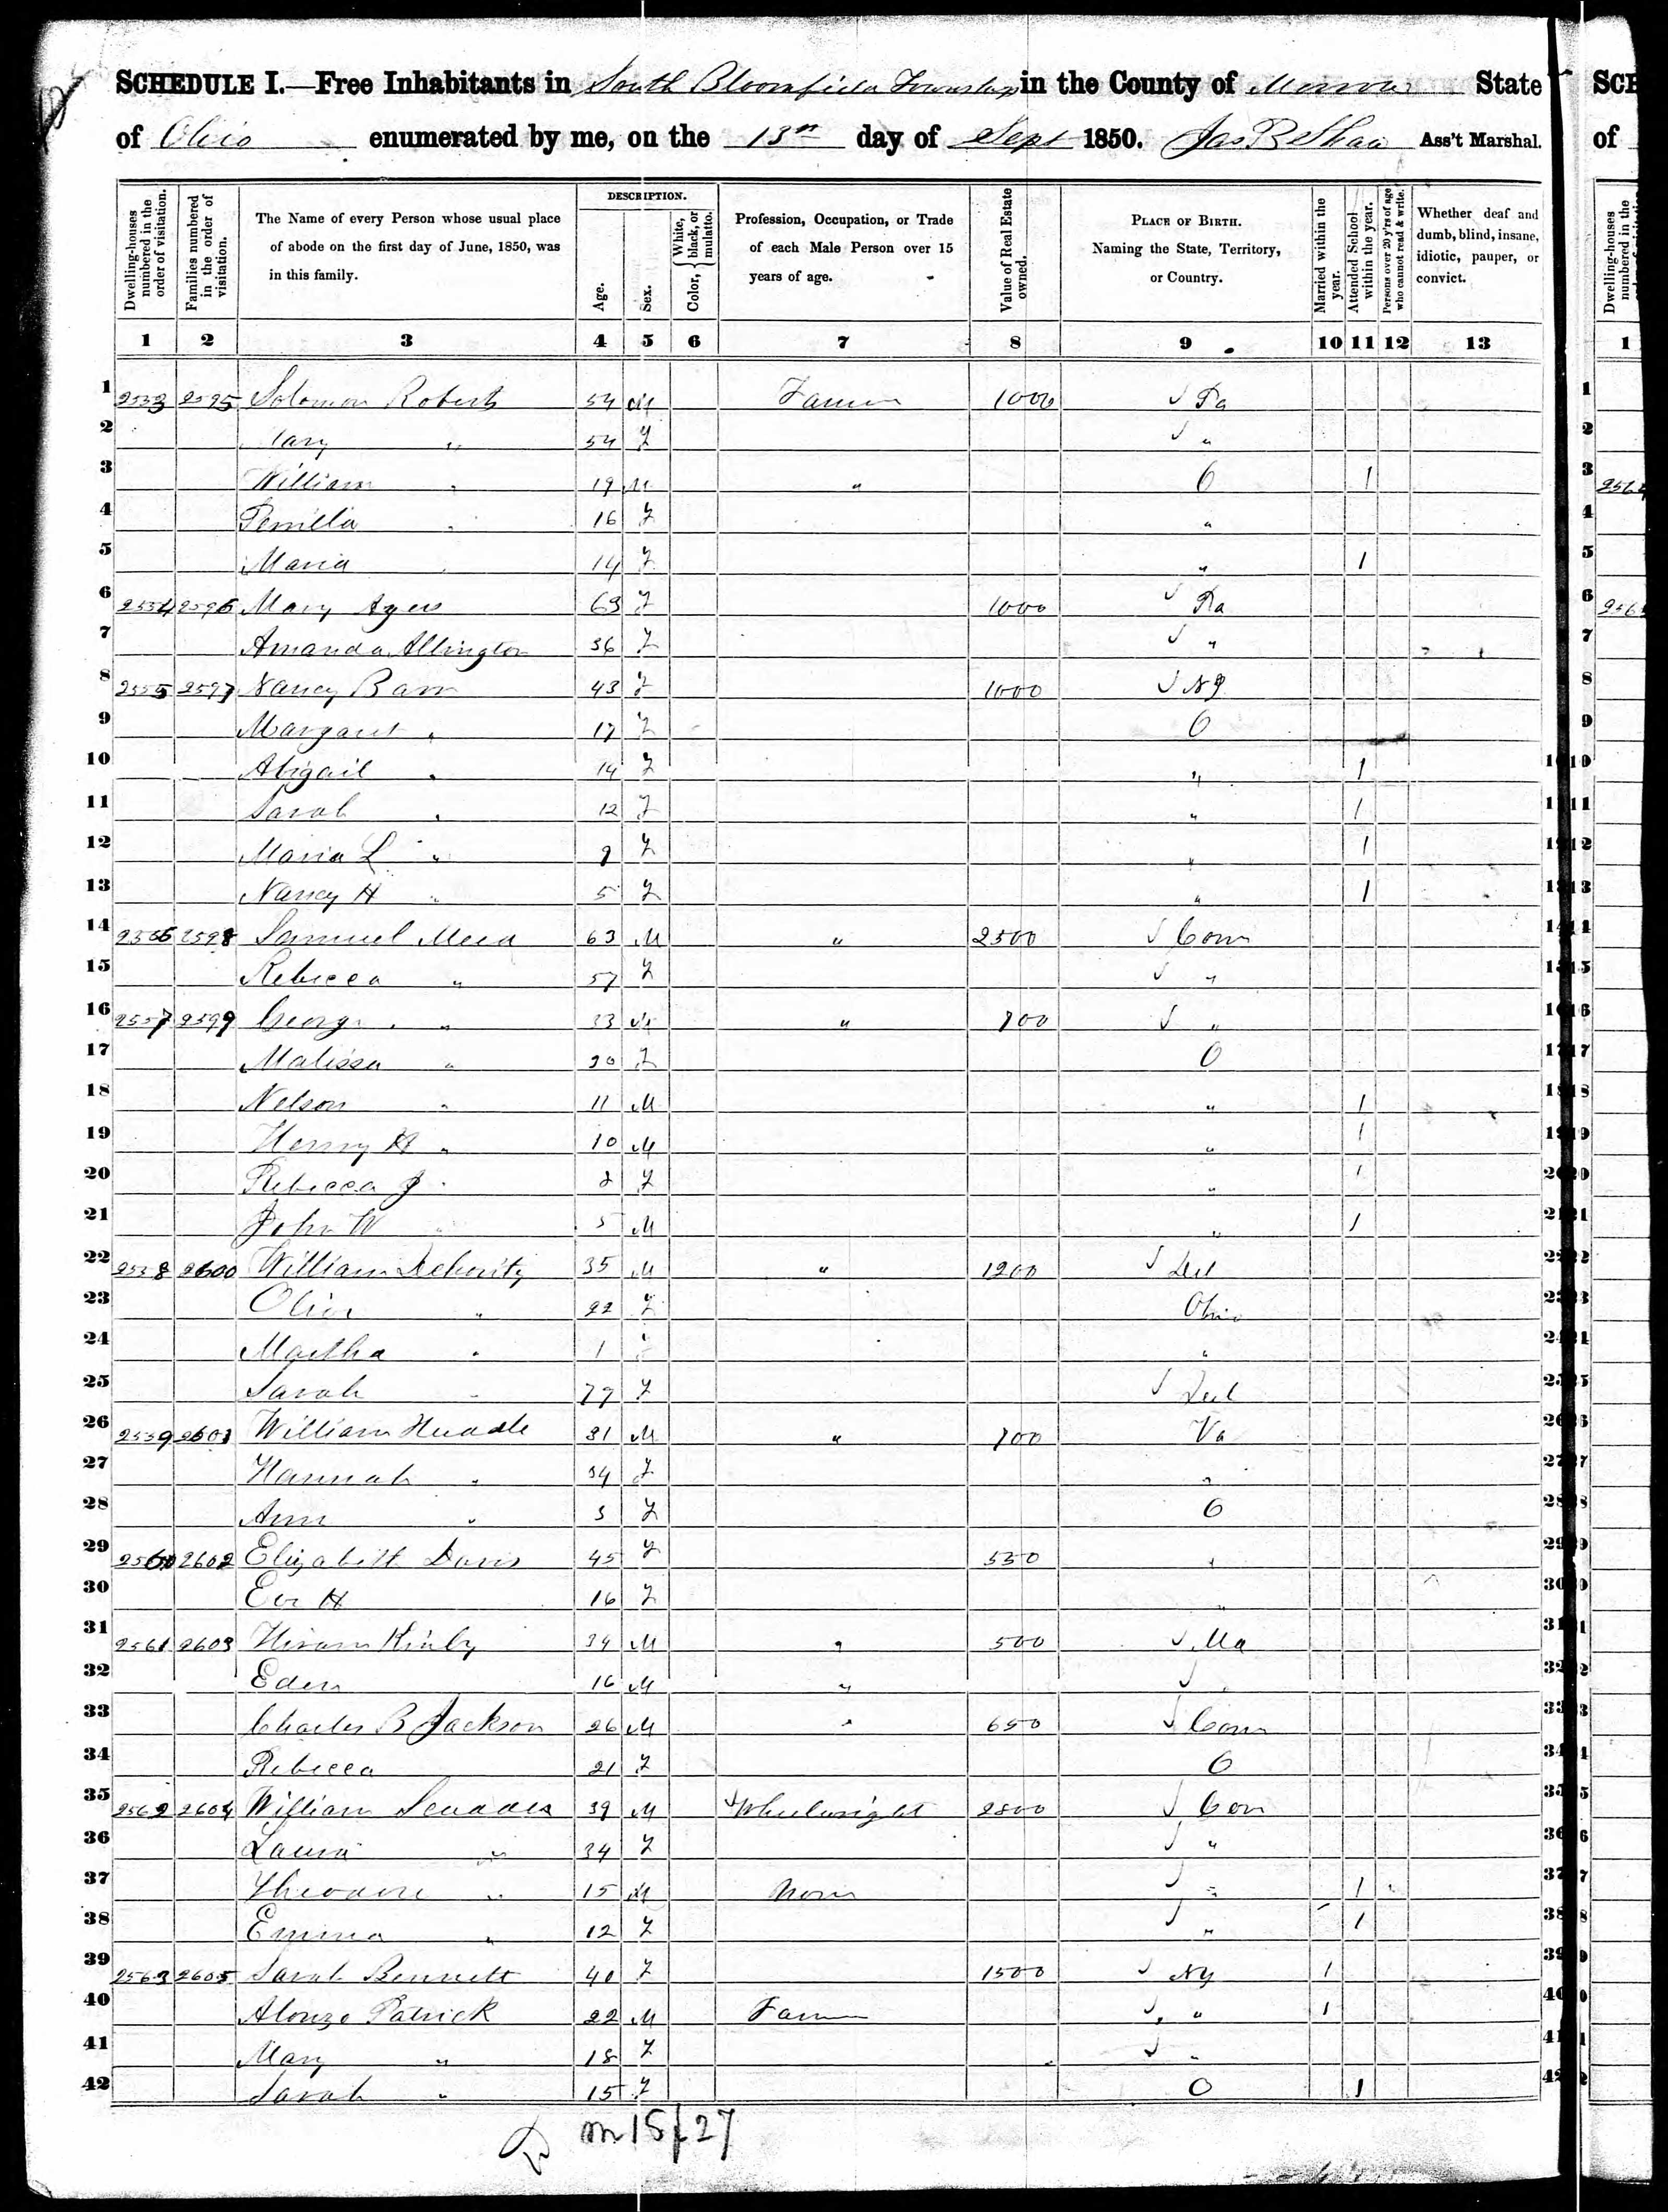 SCHEDULE I.—Free Inhabitants in South Bloomfield Township in the County of Morrow State
of Ohio enumerated by me, on the 13th day of Sept 1850. Jas B Shaw Ass't Marshal.
Dwelling-houses numbered in the order of visitation.
Families numbered in the order of visitation.
The Name of every Person whose usual place of abode on the first day of June, 1850, was in this family.
DESCRIPTION.
Age.
Sex.
Color, { White, black, or mulatto.
Profession, Occupation, or Trade of each Male Person over 15 years of age.
Value of Real Estate owned.
PLACE OF BIRTH. Naming the State, Territory, or Country.
Married within the year.
Attended School within the year.
Persons over 20 y'rs of age who cannot read & write.
Whether deaf and dumb, blind, insane, idiotic, pauper, or convict.
1 2 3 4 5 6 7 8 9 10 11 12 13
1 2533 2595 Solomon Roberts 54 M Farmer 1000 Pa
2 Mary " 54 F "
3 William " 19 M " O 1
4 Pemilla " 16 F "
5 Maria " 14 F " 1
6 2534 2596 Mary Ayers 63 F 1000 Pa
7 Amanda Allington 36 F "
8 2555 2597 Nancy Barr 43 F 1000 NJ
9 Margaret " 17 F O
10 Abigail " 14 F " 1
11 Sarah " 12 F " 1
12 Maria L " 9 F " 1
13 Nancy H " 5 F " 1
14 2556 2598 Samuel Mead 63 M " 2500 Conn
15 Rebecca " 57 F "
16 2557 2599 George " 33 M " 700 "
17 Malissa " 30 F O
18 Nelson " 11 M " 1
19 Henry H " 10 M " 1
20 Rebecca J " 8 F " 1
21 John W " 5 M " 1
22 2558 2600 William Dehority 35 M " 1200 Del
23 Olive " 22 F Ohio
24 Martha " 1 "
25 Sarah " 77 F Del
26 2559 2601 William Huddle 31 M " 700 Va
27 Hannah " 34 F "
28 Ann " 3 F O
29 2560 2602 Elizabeth Davis 45 F 550 "
30 Eve H 16 F "
31 2561 2603 Hiram Kirby 34 M " 500 Ma
32 Eden 16 M "
33 Charles B Jackson 26 M " 650 Conn
34 Rebecca 21 F O
35 2562 2604 William 39 M Wheelwright 2800 Con
36 Laura " 34 F "
37 Theodore " 15 M None " 1
38 Emma " 12 F " 1
39 2563 2605 Sarah Bennett 40 F 1500 NY 1
40 Alonzo Patrick 22 M Farmer " 1
41 Mary " 18 F "
42 Sarah " 15 F O 1
m 15 f 27